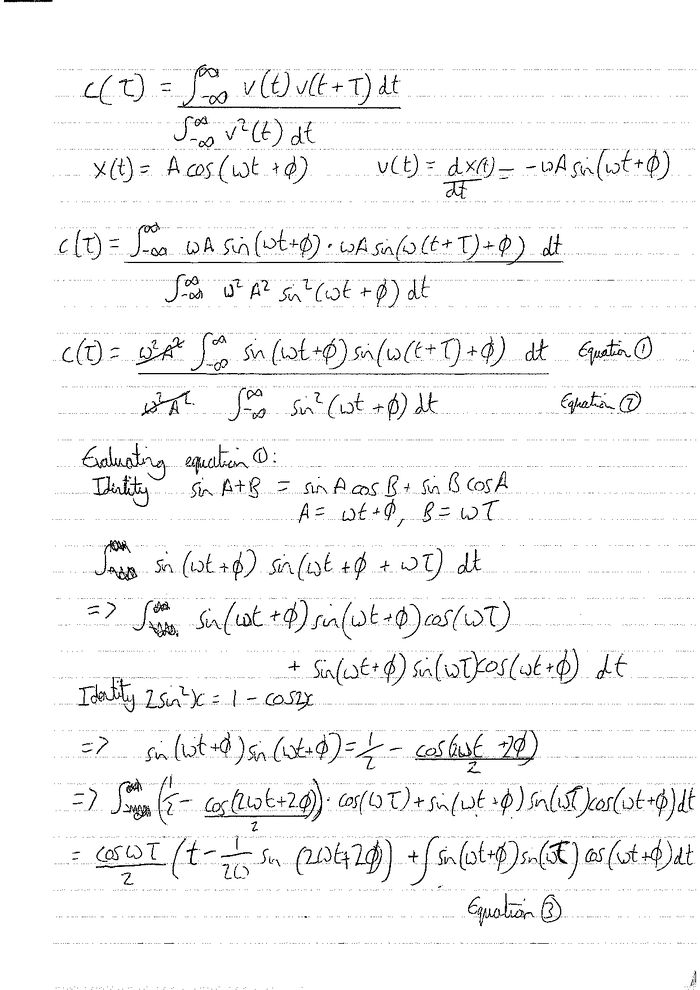 c(τ) = ∫_{-∞}^{∞} v(t) v(t+τ) dt
∫_{-∞}^{∞} v²(t) dt
x(t) = A cos(ωt + φ) v(t) = dx(t)/dt = -ωA sin(ωt+φ)
c(τ) = ∫_{-∞}^{∞} ωA sin(ωt+φ) · ωA sin(ω(t+τ)+φ) dt
∫_{-∞}^{∞} ω² A² sin²(ωt + φ) dt
c(τ) = ω²A² ∫_{-∞}^{∞} sin(ωt+φ) sin(ω(t+τ)+φ) dt Equation ①
ω²A² ∫_{-∞}^{∞} sin²(ωt + φ) dt Equation ②
Evaluating equation ①:
Identity sin A+B = sin A cos B + sin B cos A
A = ωt+φ, B = ωτ
∫ sin(ωt+φ) sin(ωt + φ + ωτ) dt
=> ∫ sin(ωt+φ) sin(ωt+φ) cos(ωτ)
+ sin(ωt+φ) sin(ωτ) cos(ωt+φ) dt
Identity 2sin²x = 1 - cos2x
=> sin(ωt+φ) sin(ωt+φ) = 1/2 - cos(2ωt + 2φ)/2
=> ∫ (1/2 - cos(2ωt+2φ)/2) · cos(ωτ) + sin(ωt+φ) sin(ωτ) cos(ωt+φ) dt
= cos ωτ/2 (t - 1/2ω sin (2ωt+2φ)) + ∫ sin(ωt+φ) sin(ωτ) cos(ωt+φ) dt
Equation ③